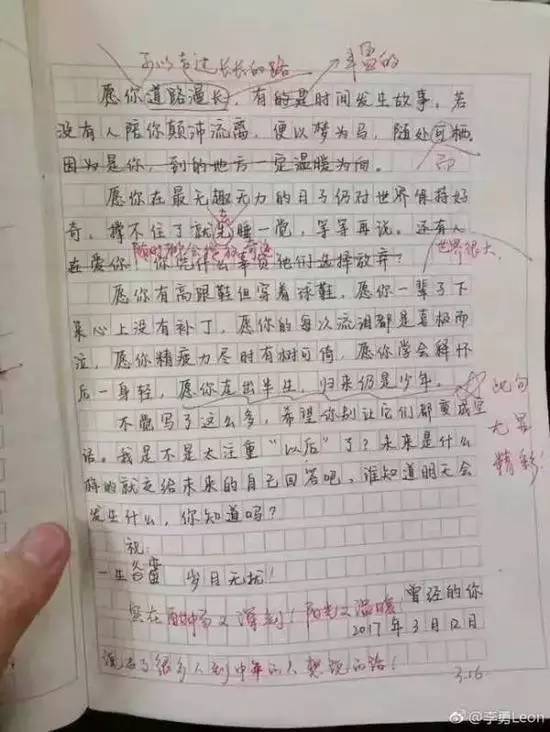 可以走过长长的路 丰富的
愿你道路漫长，有的是时间发生故事。若
没有人陪你颠沛流离，便以梦为马，随处可栖。
因为是你，到的地方一定温暖为向。
即
愿你在最无趣无力的日子仍对世界保持好
奇，撑不住了就先睡一觉，等等再说。还有人
随时都会 世界很大，
在爱你，你凭什么辜负他们选择放弃？
愿你有高跟鞋但穿着球鞋，愿你一辈子下
来心上没有补丁，愿你的每次流泪都是喜极而
泣，愿你精疲力尽时有树可倚，愿你学会释怀
后一身轻，愿你走出半生，归来仍是少年。 此句
尤其
精彩！
不觉写了这么多，希望你别让它们都变成空
话。我是不是太注重“以后”了？未来是什么
样的就交给未来的自己回答吧，谁知道明天会
发生什么，你知道吗？
祝：
一生 岁月无扰！
又深刻！阳光又温暖 曾经的你
2017年3月12日
很多人到中年的人想说的话！
3.16
@李勇Leon